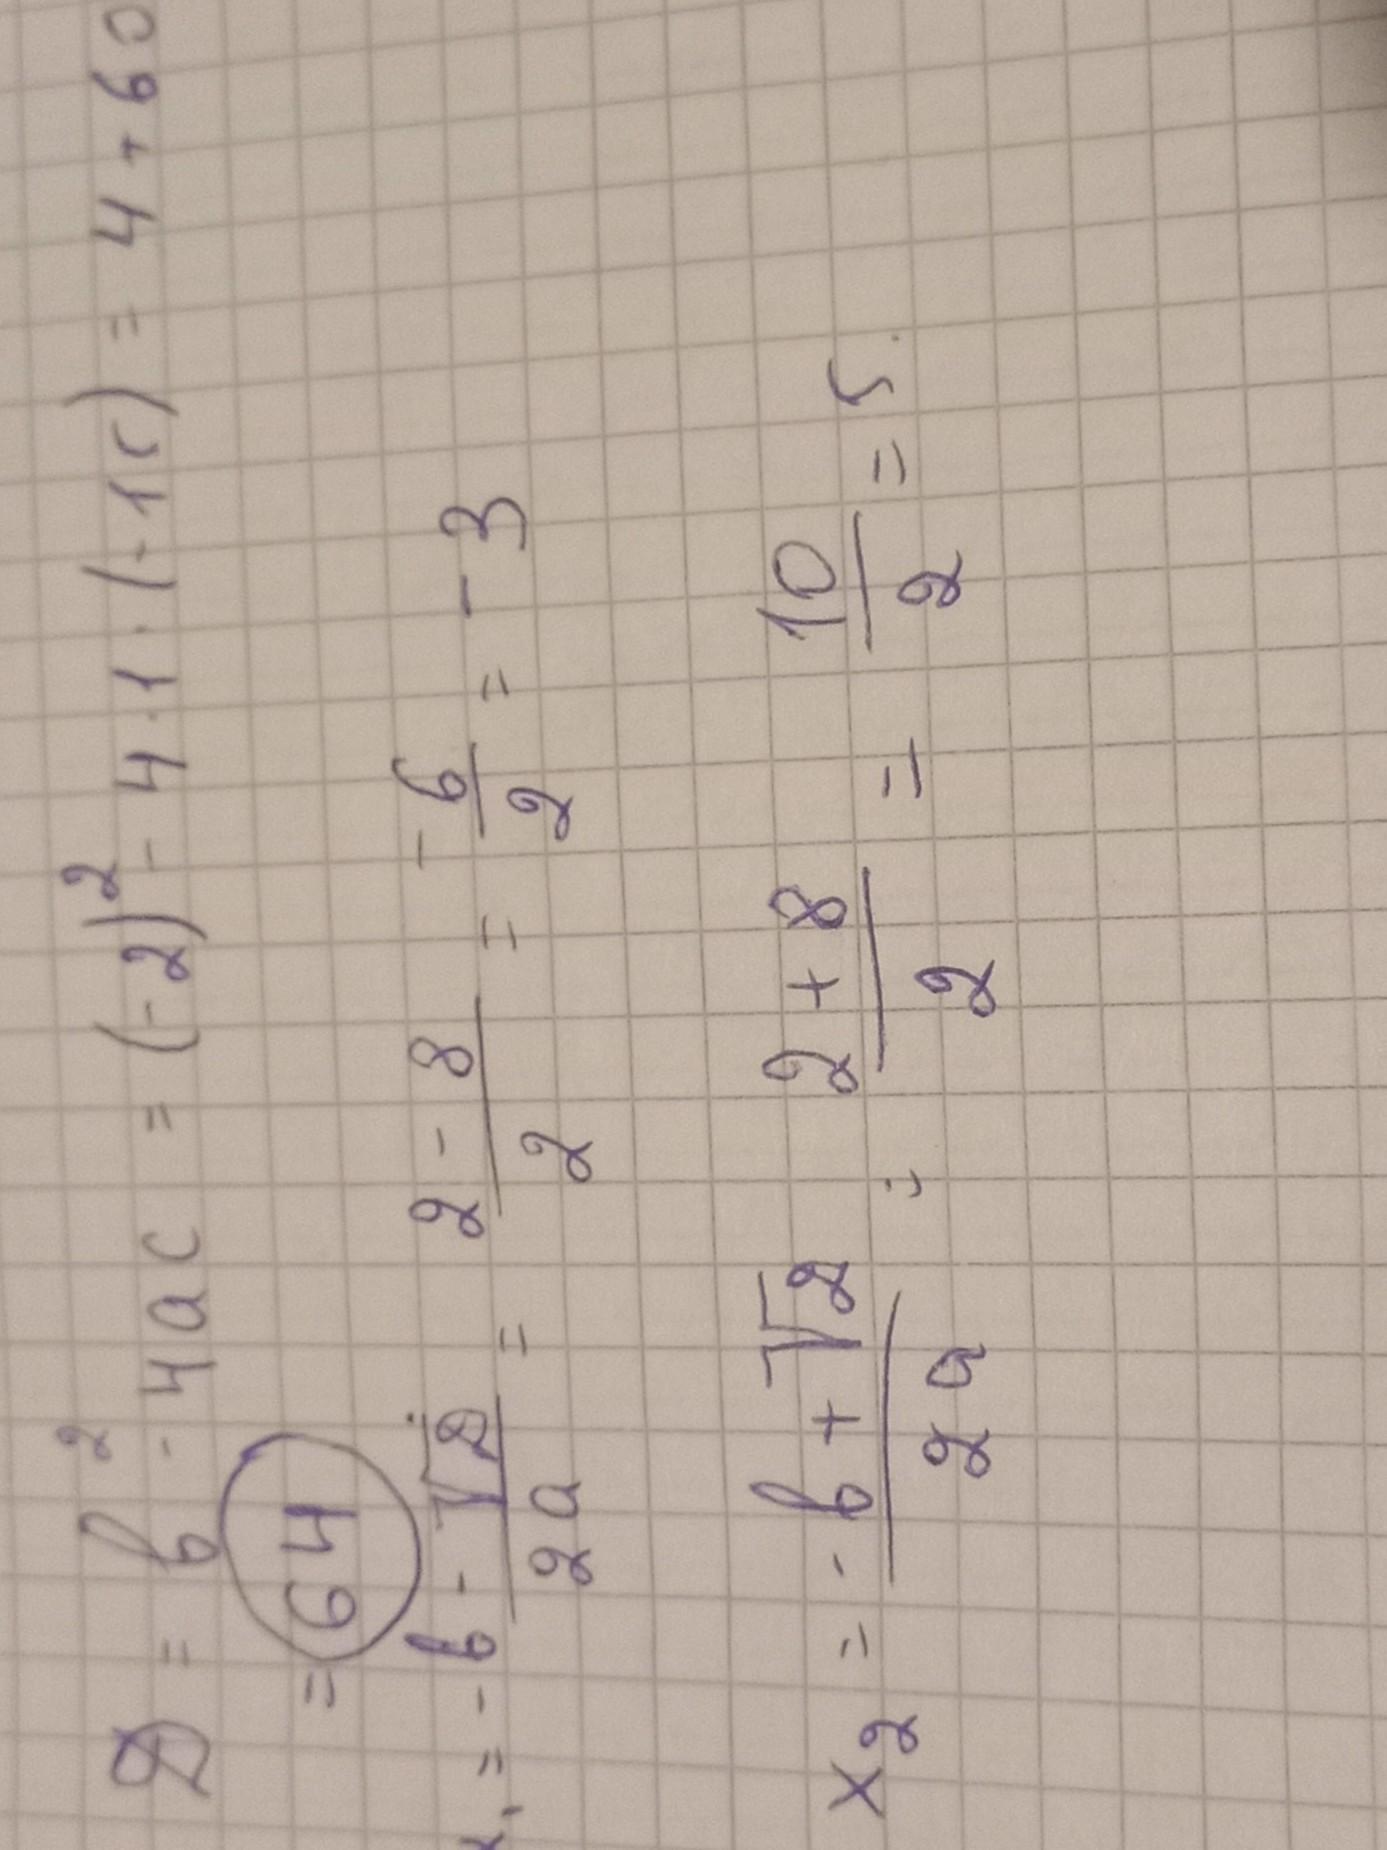 D = b² - 4ac = (-2)² - 4 · 1 · (-15) = 4 + 60
= 64
x₁ = (-b - √D) / 2a = (2 - 8) / 2 = -6/2 = -3
x₂ = (-b + √D) / 2a = (2 + 8) / 2 = 10/2 = 5.